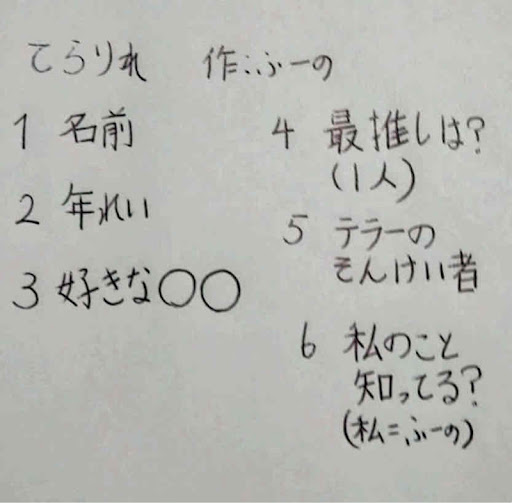 てらりれ 作:ふーの
1 名前
2 年れい
3 好きな○○
4 最推しは?
(1人)
5 テラーの
そんけい者
6 私のこと
知ってる?
(私=ふーの)